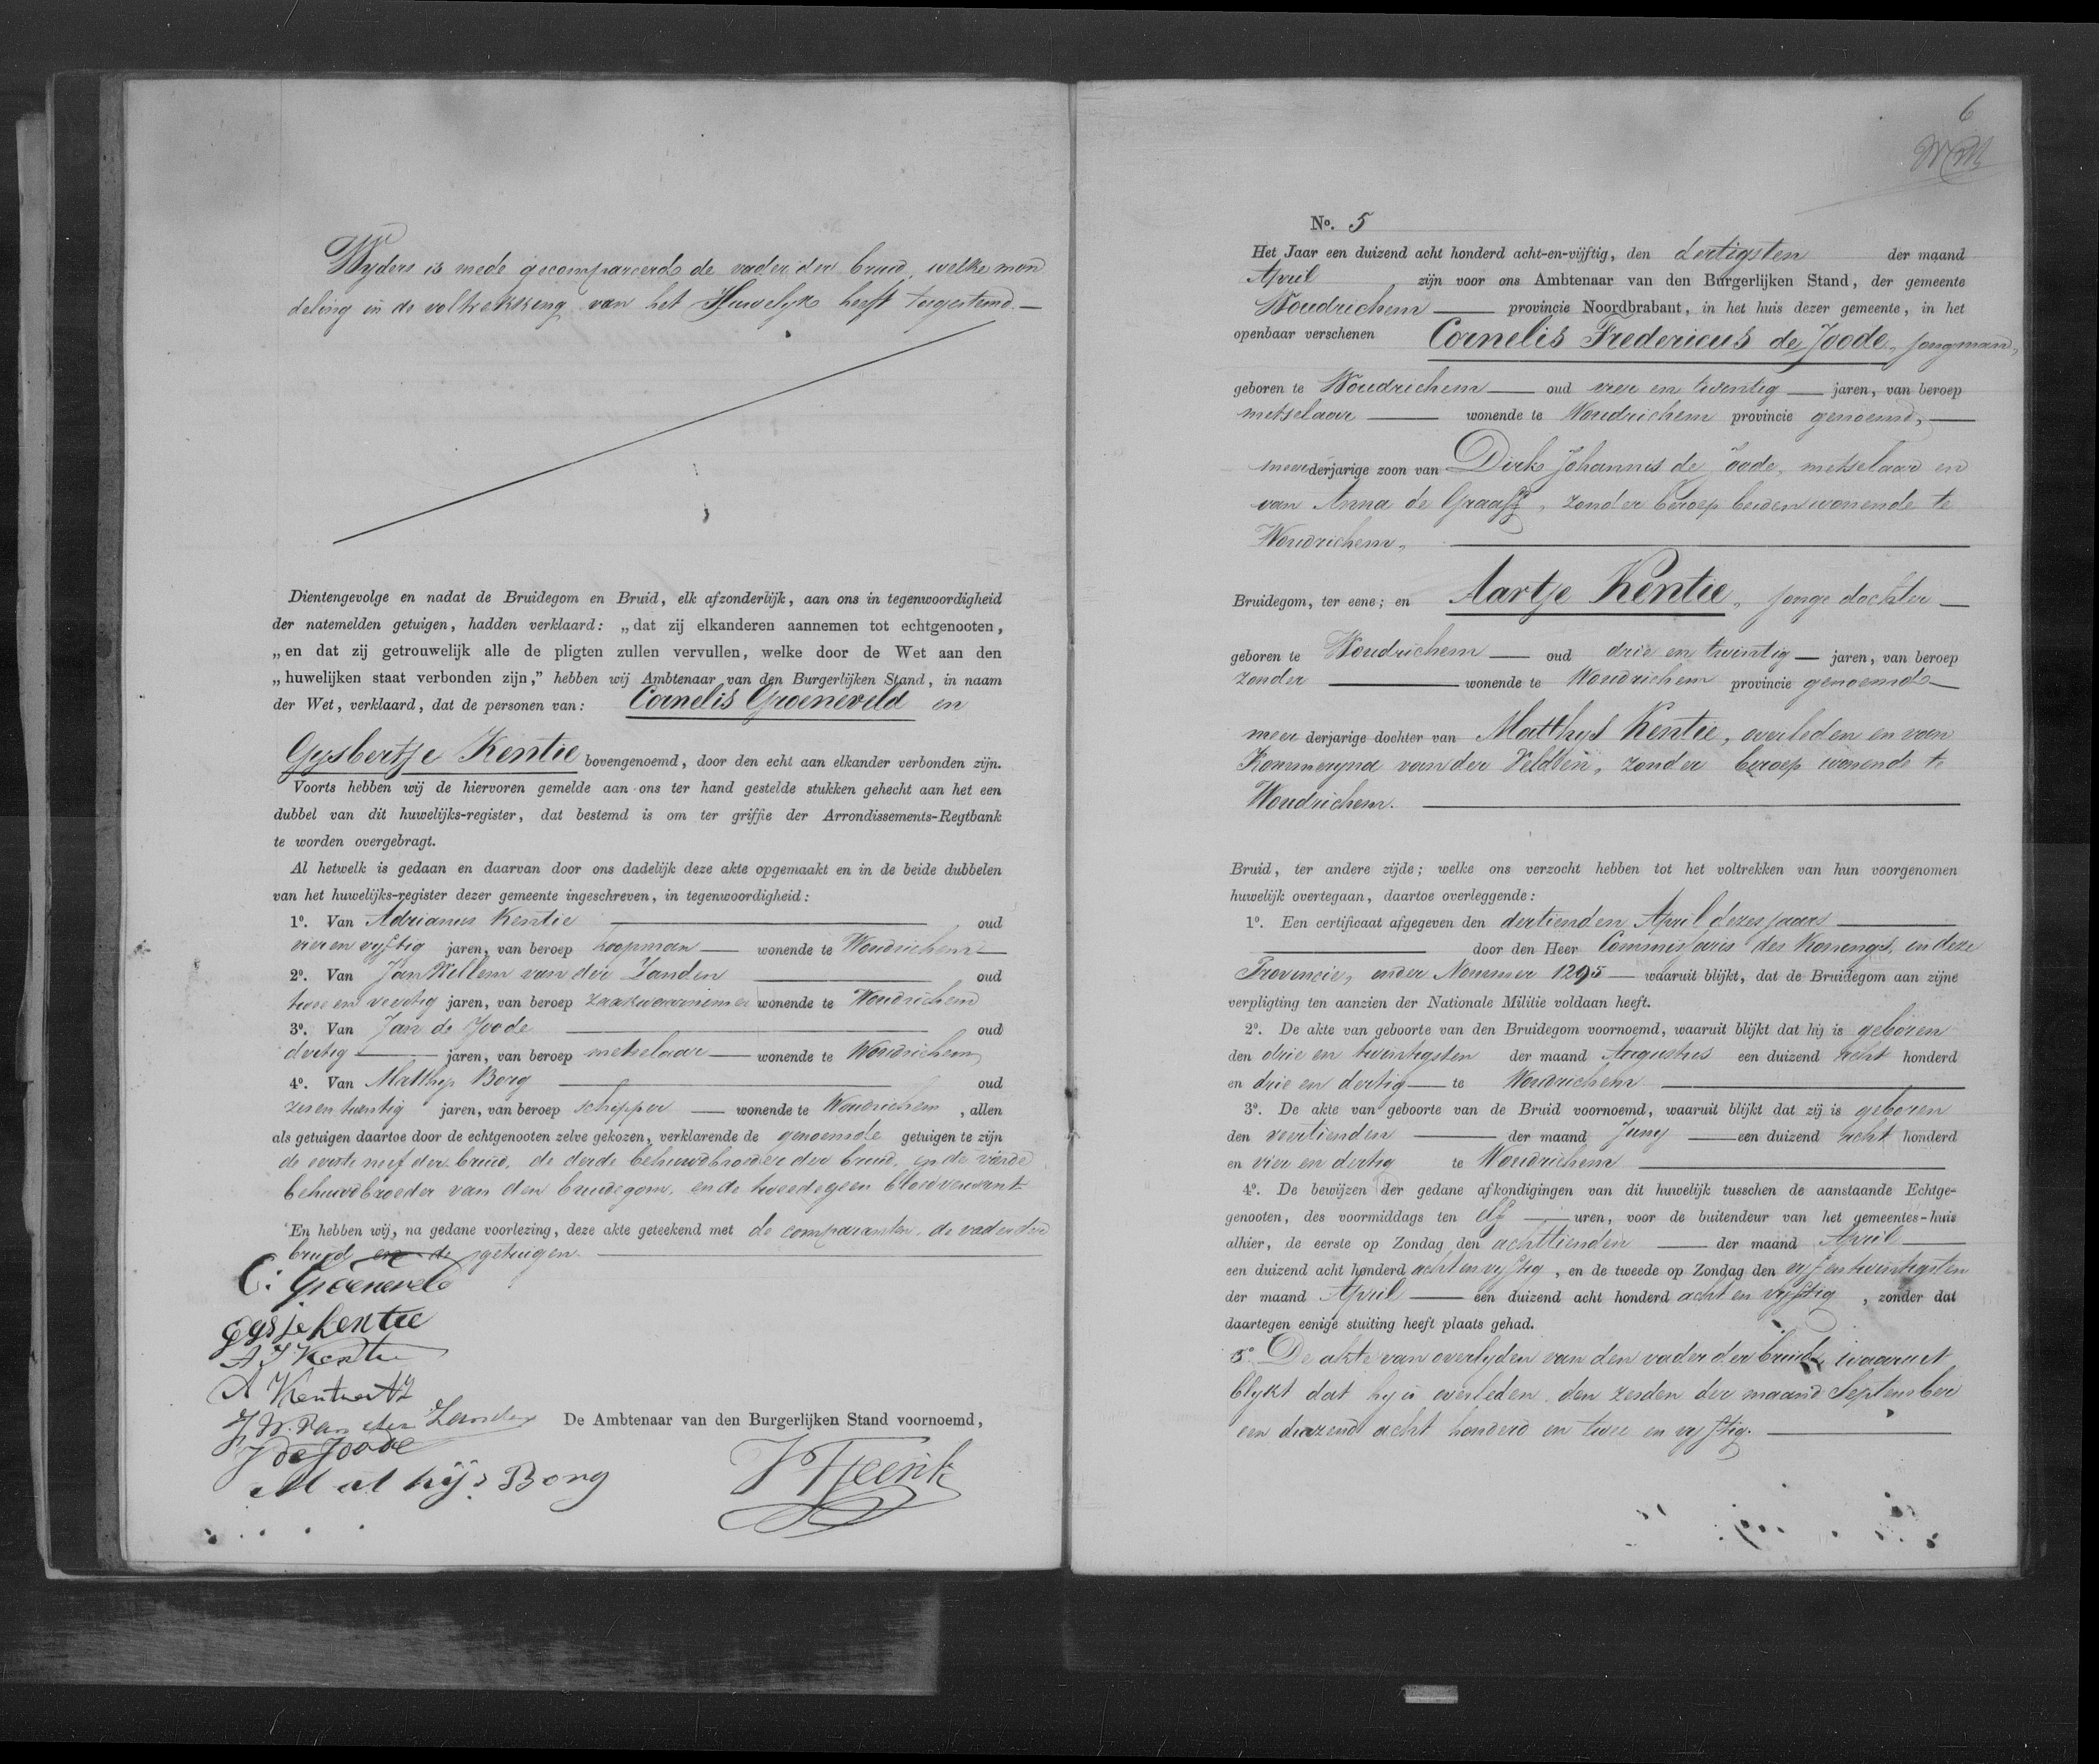 Wyders is mede gecompareerd de vader der bruid, welke mon
deling in de voltrekking van het Huwelyk heeft toegestemd.—
Dientengevolge en nadat de Bruidegom en Bruid, elk afzonderlijk, aan ons in tegenwoordigheid
der natemelden getuigen, hadden verklaard: „dat zij elkanderen aannemen tot echtgenooten,
„en dat zij getrouwelijk alle de pligten zullen vervullen, welke door de Wet aan den
„huwelijken staat verbonden zijn,” hebben wij Ambtenaar van den Burgerlijken Stand, in naam
der Wet, verklaard, dat de personen van: Cornelis Groeneveld en
Gysbertje Kentie bovengenoemd, door den echt aan elkander verbonden zijn.
Voorts hebben wij de hiervoren gemelde aan ons ter hand gestelde stukken gehecht aan het een
dubbel van dit huwelijks-register, dat bestemd is om ter griffie der Arrondissements-Regtbank
te worden overgebragt.
Al hetwelk is gedaan en daarvan door ons dadelijk deze akte opgemaakt en in de beide dubbelen
van het huwelijks-register dezer gemeente ingeschreven, in tegenwoordigheid:
1o. Van Adrianus Kentie oud
vier en vyftig jaren, van beroep koopman wonende te Woudrichem
2o. Van Jan Willem van der Zanden oud
twee en veertig jaren, van beroep zaakwaarnemer wonende te Woudrichem
3o. Van Jan de Joode oud
dertig jaren, van beroep metselaar wonende te Woudrichem
4o. Van Matthys Borg oud
zes en twintig jaren, van beroep schipper wonende te Woudrichem, allen
als getuigen daartoe door de echtgenooten zelve gekozen, verklarende de genoemde getuigen te zijn
de eerste neef der bruid, de derde behuwdbroeder der bruid, en de vierde
behuwdbroeder van den bruidegom, en de tweede geen bloedverwant
En hebben wij, na gedane voorlezing, deze akte geteekend met de comparanten, de vader der
bruid en de getuigen.
C: Groeneveld
gysje kentie
A J Kentie
A Kentie
J. W. Van der Zanden De Ambtenaar van den Burgerlijken Stand voornoemd,
J de Joode
Mathijs Borg
6
No. 5
Het Jaar een duizend acht honderd acht-en-vijftig, den dertigsten der maand
April zijn voor ons Ambtenaar van den Burgerlijken Stand, der gemeente
Woudrichem provincie Noordbrabant, in het huis dezer gemeente, in het
openbaar verschenen Cornelis Fredericus de Joode, jongman,
geboren te Woudrichem oud vier en twintig jaren, van beroep
metselaar wonende te Woudrichem provincie genoemd,
meerderjarige zoon van Dirk Johannis de Joode, metselaar en
van Anna de Graaff, zonder beroep beiden wonende te
Woudrichem,
Bruidegom, ter eene; en Aartje Kentie, jonge dochter
geboren te Woudrichem oud drie en twintig jaren, van beroep
zonder wonende te Woudrichem provincie genoemd
meerderjarige dochter van Matthys Kentie, overleden en van
Kommeryna van der Velden, zonder beroep wonende te
Woudrichem.
Bruid, ter andere zijde; welke ons verzocht hebben tot het voltrekken van hun voorgenomen
huwelijk overtegaan, daartoe overleggende:
1o. Een certificaat afgegeven den dertienden April dezes jaars
door den Heer Commissaris des Konings, in deze
Provincie, onder Nommer 1295 waaruit blijkt, dat de Bruidegom aan zijne
verpligting ten aanzien der Nationale Militie voldaan heeft.
2o. De akte van geboorte van den Bruidegom voornoemd, waaruit blijkt dat hij is geboren
den drie en twintigsten der maand Augustus een duizend acht honderd
en drie en dertig te Woudrichem
3o. De akte van geboorte van de Bruid voornoemd, waaruit blijkt dat zij is geboren
den veertienden der maand Juny een duizend acht honderd
en vier en dertig te Woudrichem
4o. De bewijzen der gedane afkondigingen van dit huwelijk tusschen de aanstaande Echtge-
genooten, des voormiddags ten elf uren, voor de buitendeur van het gemeentes-huis
alhier, de eerste op Zondag den achttienden der maand April
een duizend acht honderd acht en vyftig, en de tweede op Zondag den vyf en twintigsten
der maand April een duizend acht honderd acht en vyftig, zonder dat
daartegen eenige stuiting heeft plaats gehad.
5o De akte van overlyden van den vader der bruid, waaruit
blykt dat hy is overleden den zesden der maand September
een duizend acht honderd en twee en vyftig.